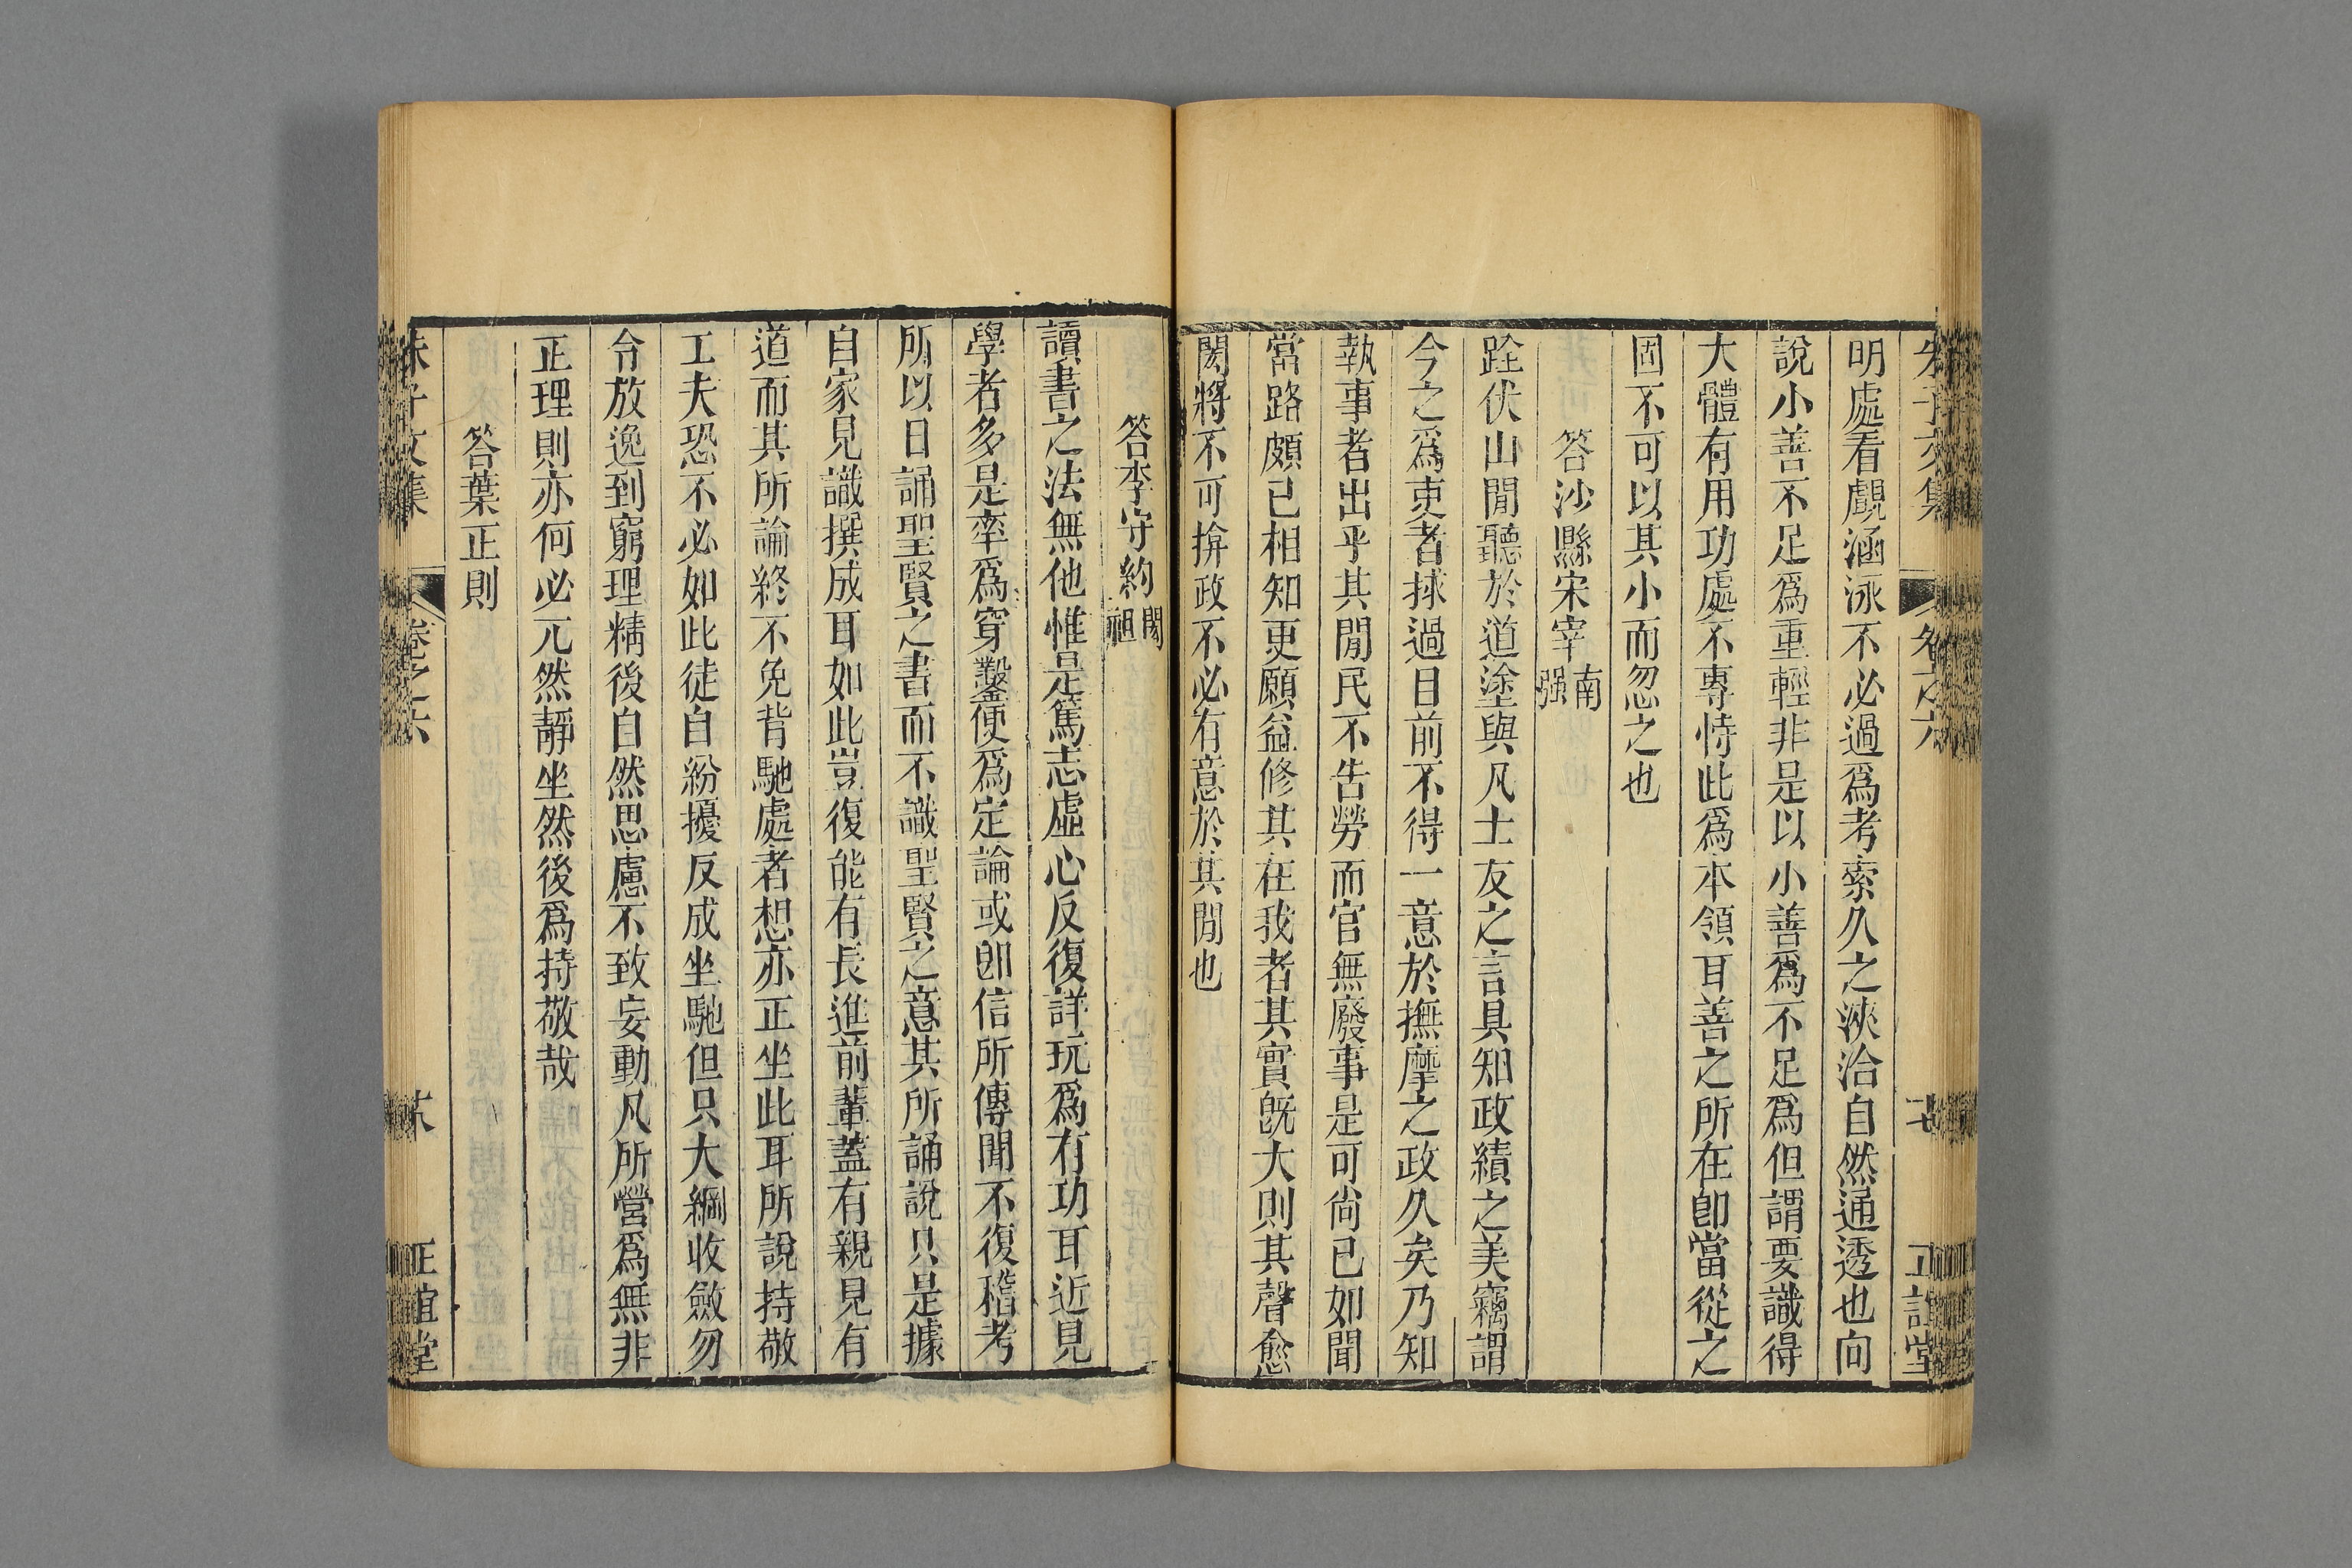 朱子文集 卷之六 七 正誼堂
明處看覰涵泳不必過爲考索久之浹洽自然通透也向
說小善不足爲重輕非是以小善爲不足爲但謂要識得
大體有用功處不專恃此爲本領耳善之所在卽當從之
固不可以其小而忽之也
答沙縣宋宰南強
跧伏山閒聽於道塗與凡士友之言具知政績之美竊謂
今之爲吏者捄過目前不得一意於撫摩之政久矣乃知
執事者出乎其閒民不告勞而官無廢事是可尚已如聞
當路頗已相知更願益修其在我者其實旣大則其聲愈
閎將不可揜政不必有意於其閒也
答李守約閎祖
讀書之法無他惟是篤志虛心反復詳玩爲有功耳近見
學者多是率爲穿鑿便爲定論或卽信所傳聞不復稽考
所以日誦聖賢之書而不識聖賢之意其所誦說只是據
自家見識撰成耳如此豈復能有長進前輩蓋有親見有
道而其所論終不免背馳處者想亦正坐此耳所說持敬
工夫恐不必如此徒自紛擾反成坐馳但只大綱收斂勿
令放逸到窮理精後自然思慮不致妄動凡所營爲無非
正理則亦何必兀然靜坐然後爲持敬哉
答葉正則
朱子文集 卷之六 正誼堂